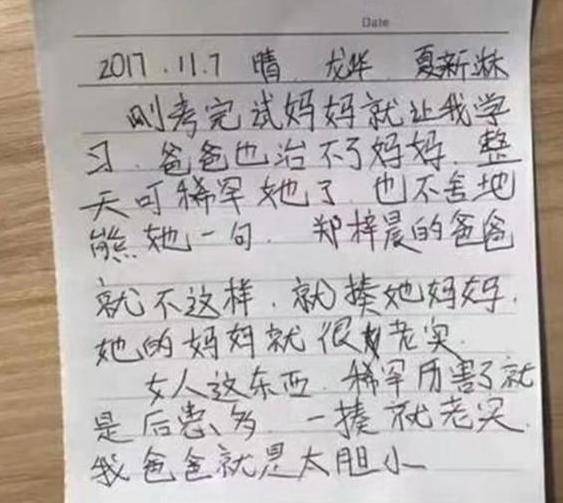 Date
2017.11.7 晴 龙华 夏新淋
刚考完试妈妈就让我学
习.爸爸也治不了妈妈.整
天可稀罕她了.也不舍地
熊她一句.郑梓晨的爸爸
就不这样.就揍她妈妈.
她的妈妈就很老实.
女人这东西.稀罕历害了就
是后患多.一揍就老实.
我爸爸就是太胆小